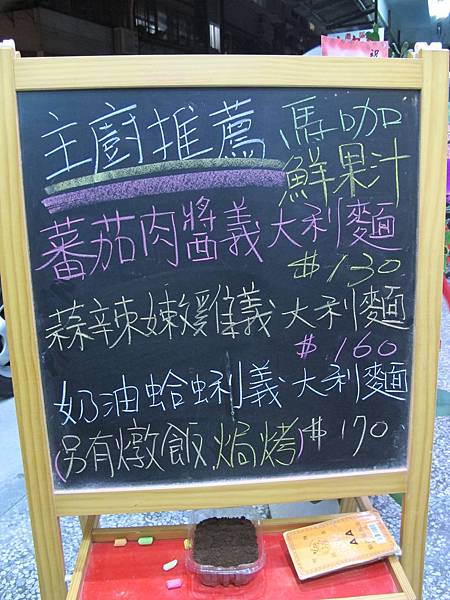 主廚推薦
馬咖
鮮果汁
蕃茄肉醬義大利麵
$130
蒜辣嫩雞義大利麵
$160
奶油蛤蜊義大利麵
(另有燉飯.焗烤) $170